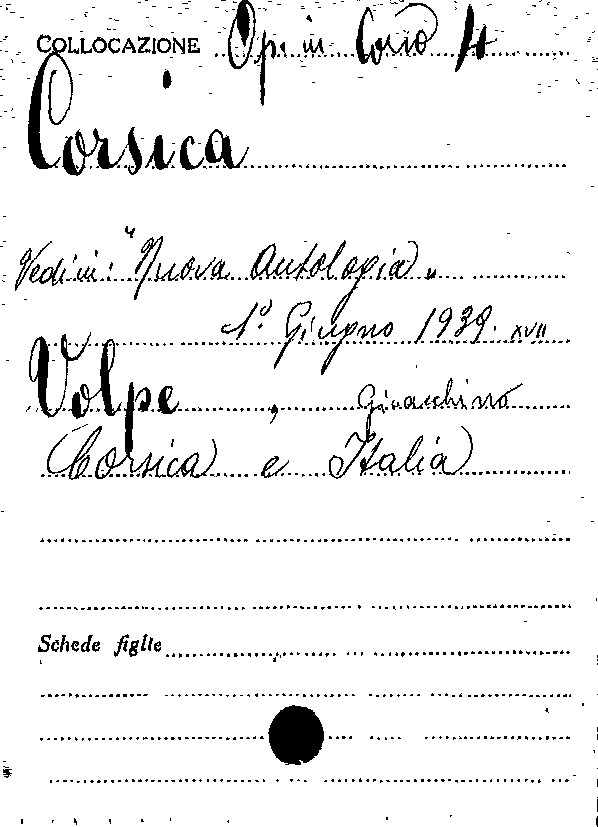 COLLOCAZIONE Op. in Corso 4
Corsica
Vedi in: "Nuova Antologia„
1º. Giugno 1939. XVII
Volpe, Gioacchino
Corsica e Italia
Schede figlie